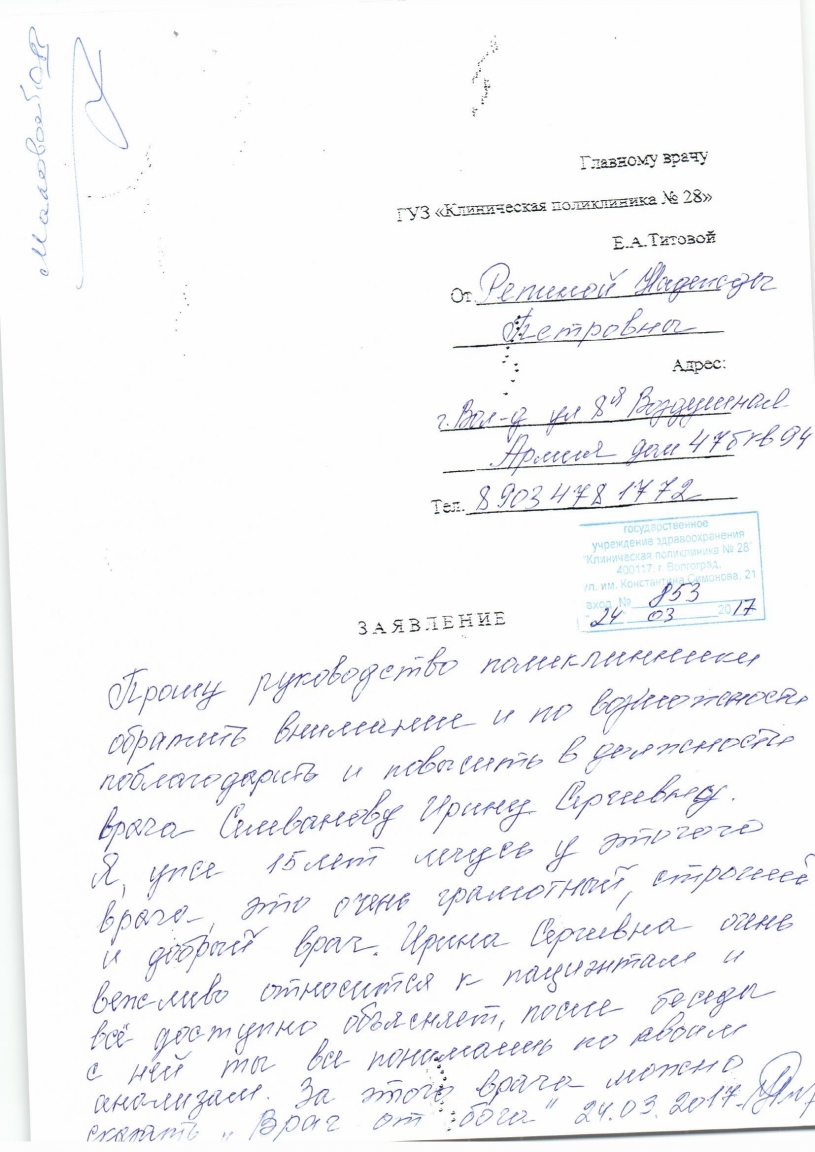 Маловой О.В
Главному врачу
ГУЗ «Клиническая поликлиника № 28»
Е.А.Титовой
От Репиной Надежды
Петровны
Адрес:
г. Вол-д ул 8я Воздушная
Армия дом 47б кв 94
Тел. 8 903 478 1772
государственное
учреждение здравоохранения
"Клиническая поликлиника № 28"
400117, г. Волгоград,
ул. им. Константина Симонова, 21
вход. № 853
24 03 2017
ЗАЯВЛЕНИЕ
Прошу руководство поликлинники
обратить внимание и по возможности
поблагодарить и повысить в должности
врача Селиванову Ирину Сергеевну.
Я, уже 15 лет лечусь у этого
врача, это очень грамотный, строгий
и добрый врач. Ирина Сергеевна очень
вежливо относится к пациэнтам и
всё доступно объясняет, после беседы
с ней ты все понимаешь по своим
анализам. За этого врача можно
сказать „Врач от бога" 24.03.2017